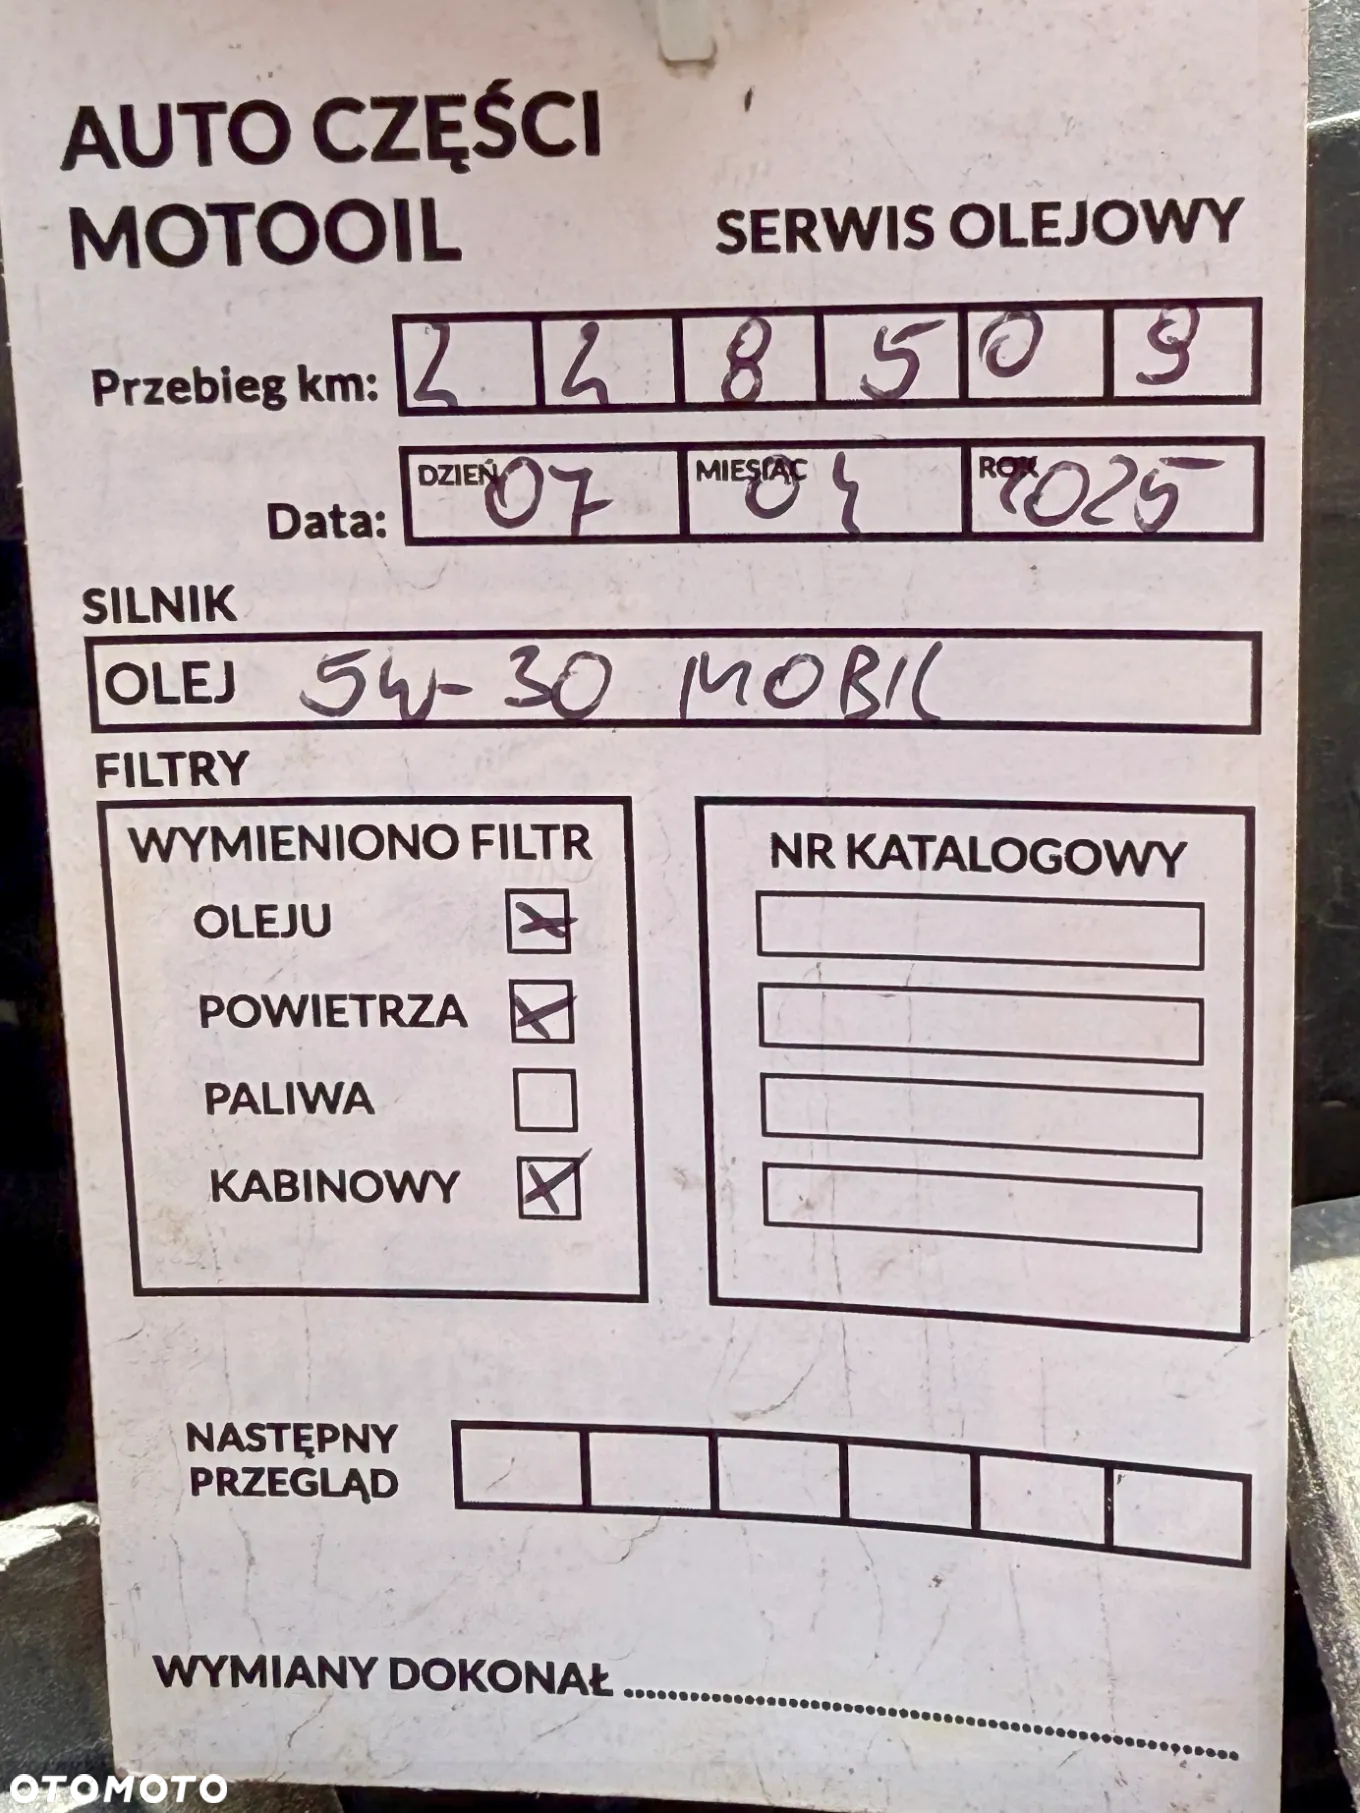 AUTO CZĘŚCI
MOTOOIL
SERWIS OLEJOWY
Przebieg km: 2 2 8 5 0 9
Data: DZIEŃ 07 MIESIĄC 04 ROK 2025
SILNIK
OLEJ 5W-30 MOBIL
FILTRY
WYMIENIONO FILTR
OLEJU X
POWIETRZA X
PALIWA
KABINOWY X
NR KATALOGOWY
NASTĘPNY
PRZEGLĄD
WYMIANY DOKONAŁ ..........
OTOMOTO